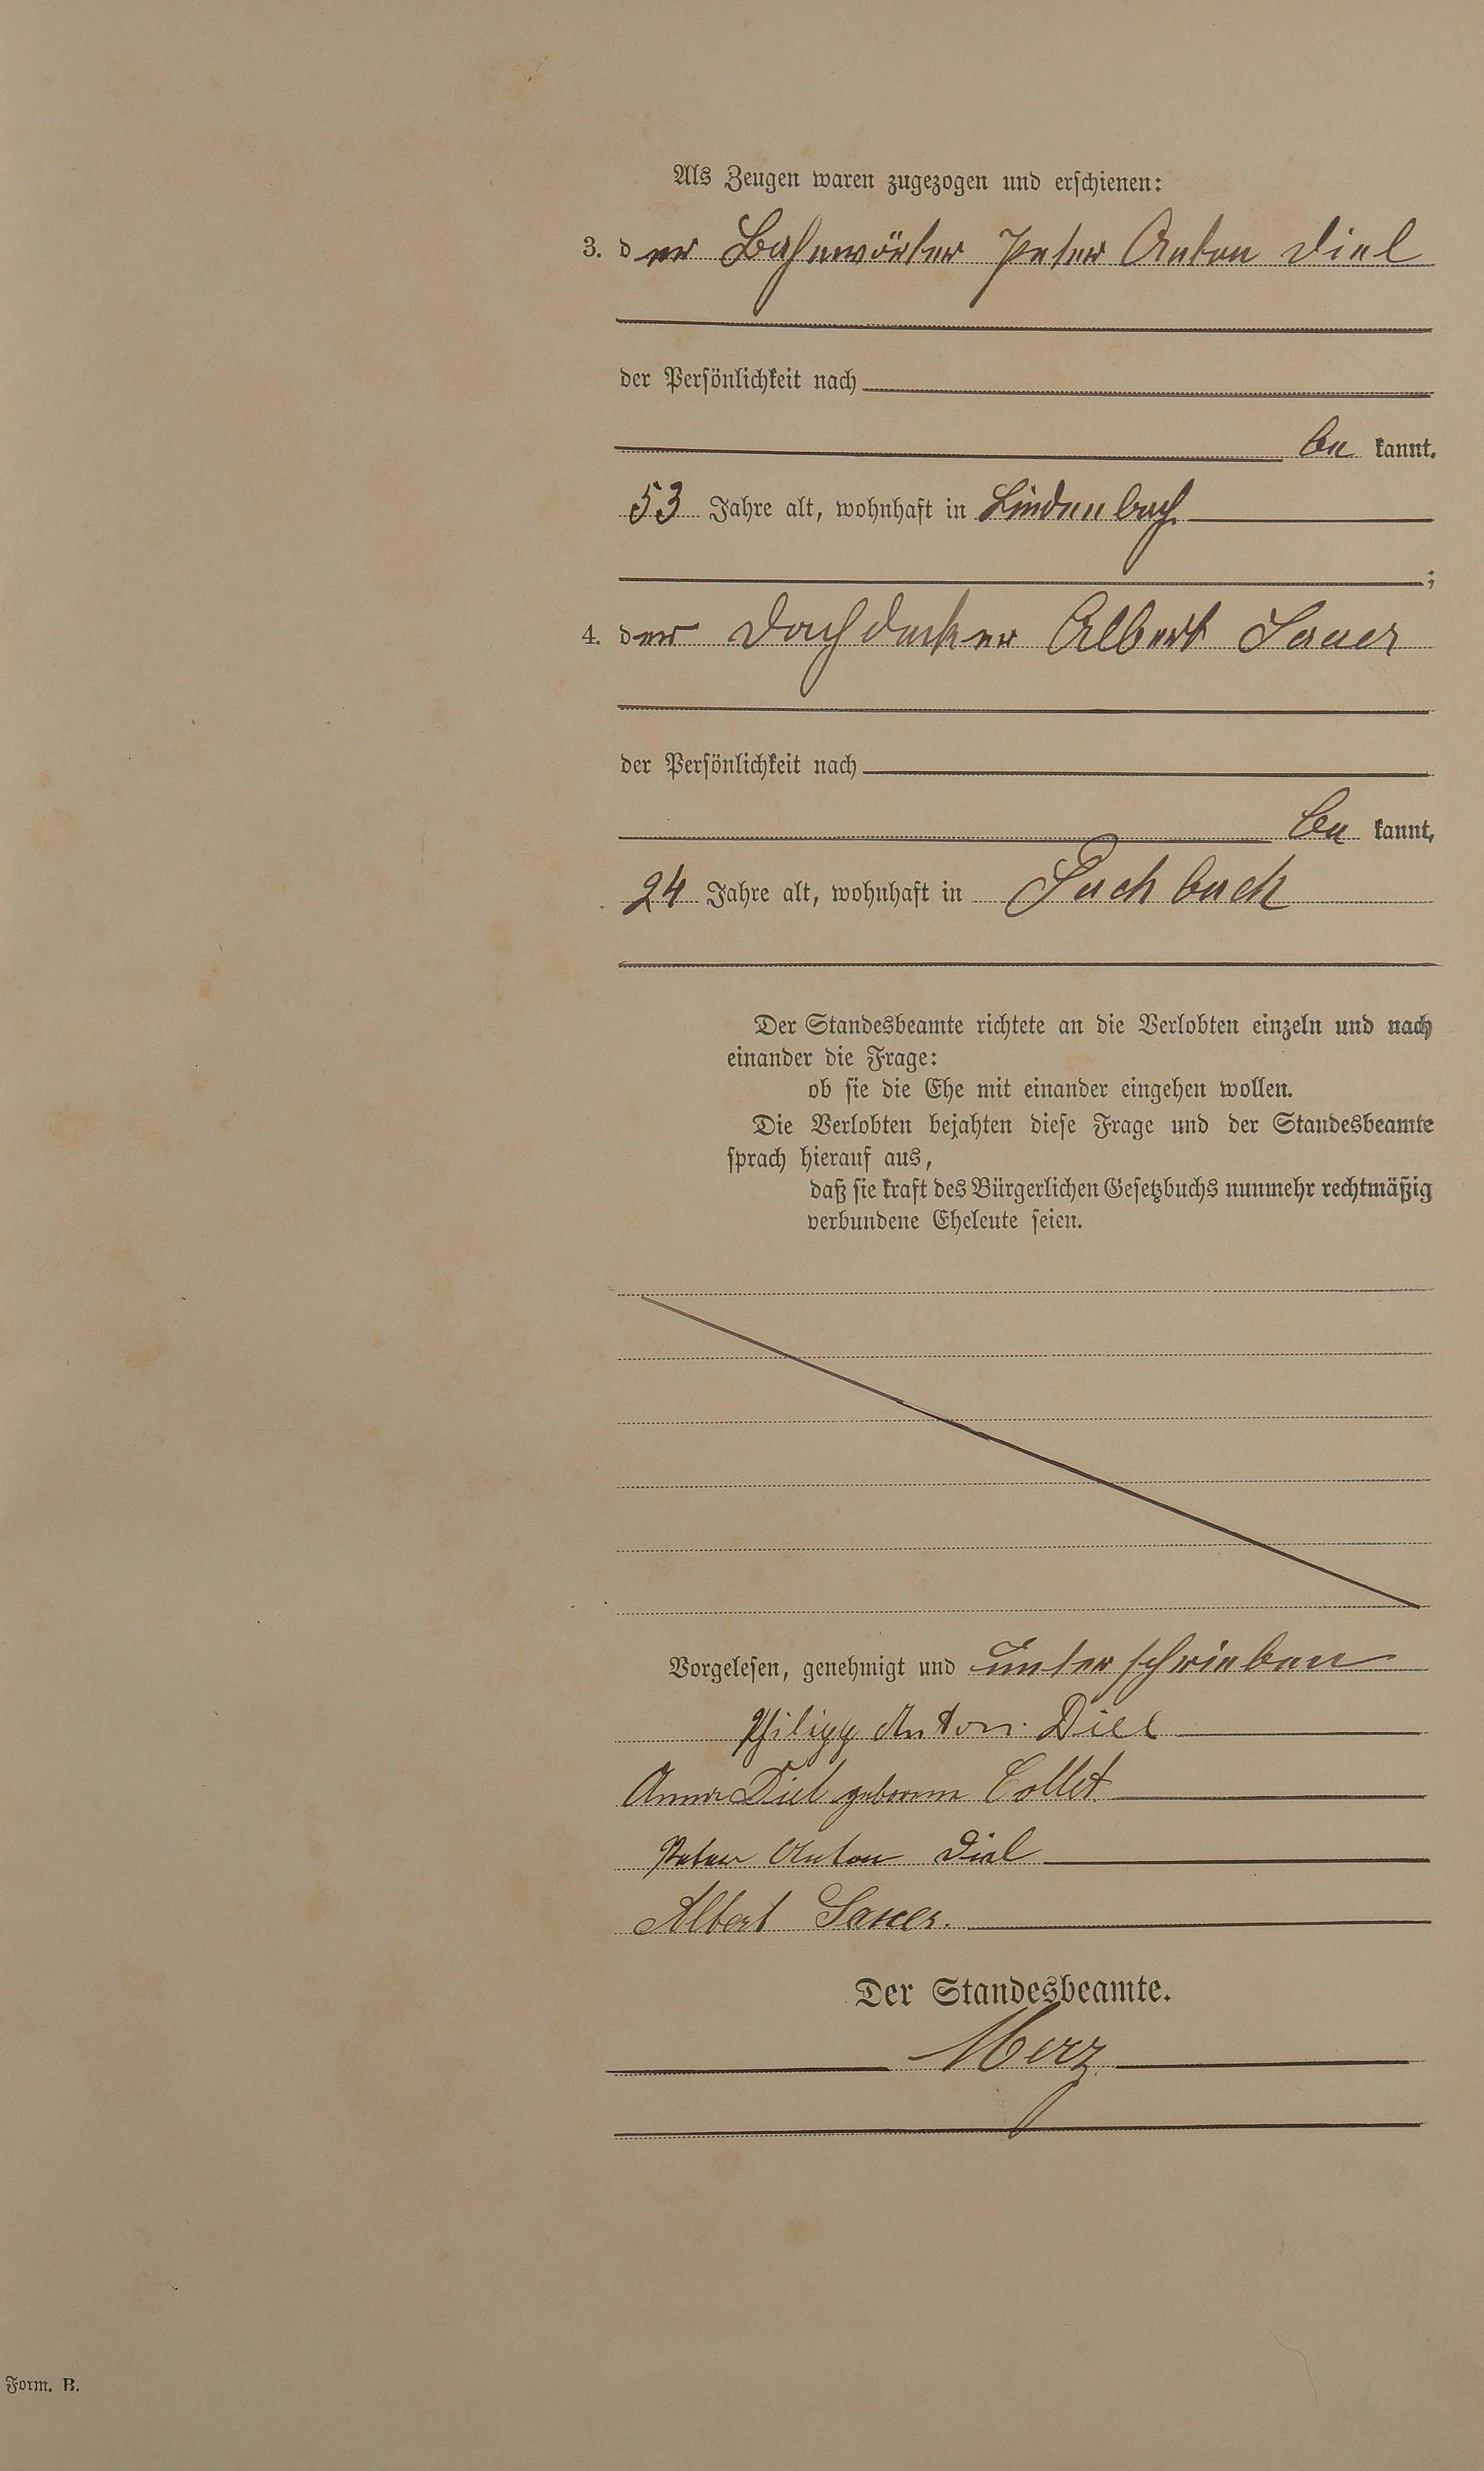 Als Zeugen waren zugezogen und erschienen:
3. der Bahnwärter Peter Anton Diel
der Persönlichkeit nach
be kannt,
53 Jahre alt, wohnhaft in Lindenbach
;
4. der Dachdecker Albert Sauer
der Persönlichkeit nach
be kannt,
24 Jahre alt, wohnhaft in
Der Standesbeamte richtete an die Verlobten einzeln und nach
einander die Frage:
ob sie die Ehe mit einander eingehen wollen.
Die Verlobten bejahten diese Frage und der Standesbeamte
sprach hierauf aus,
daß sie kraft des Bürgerlichen Gesetzbuchs nunmehr rechtmäßig
verbundene Eheleute seien.
Vorgelesen, genehmigt und unterschrieben
Philipp Anton Diel
Anna Diel geborene Collet
Peter Anton Diel
Albert Sauer.
Der Standesbeamte.
Merz
Form. B.